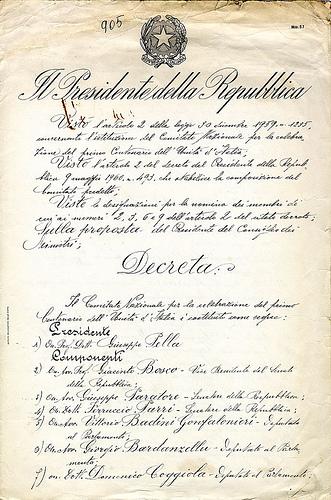 905
Mod. 51
Il Presidente della Repubblica
Visto l'articolo 2 della legge 30 dicembre 1959 n. 1235,
concernente l'istituzione del Comitato Nazionale per la celebra=
zione del primo Centenario dell'Unità d'Italia;
Visto l'articolo 2 del decreto del Presidente della Repub=
blica 9 maggio 1960, n. 493, che stabilisce la composizione del
Comitato predetto;
Viste le designazioni per la nomina dei membri di
cui ai numeri 2, 3, 6 e 9 dell'articolo 2 del citato decreto;
Sulla proposta del Presidente del Consiglio dei
Ministri;
Decreta:
Il Comitato Nazionale per la celebrazione del primo
Centenario dell'Unità d'Italia è costituito come segue:
Presidente
1) On. Prof. Dott. Giuseppe Pella
Componenti
2) On. Avv. Prof. Giacinto Bosco - Vice Presidente del Senato
della Repubblica;
3) On. Avv. Giuseppe Paratore - Senatore della Repubblica;
4) On. Dott. Ferruccio Parri - Senatore della Repubblica;
5) On. Avv. Vittorio Badini Gonfalonieri - Deputato
al Parlamento;
6) On. Avv. Giorgio Bardanzellu - Deputato al Parla=
mento;
7) On. Dott. Domenico Coggiola - Deputato al Parlamento;